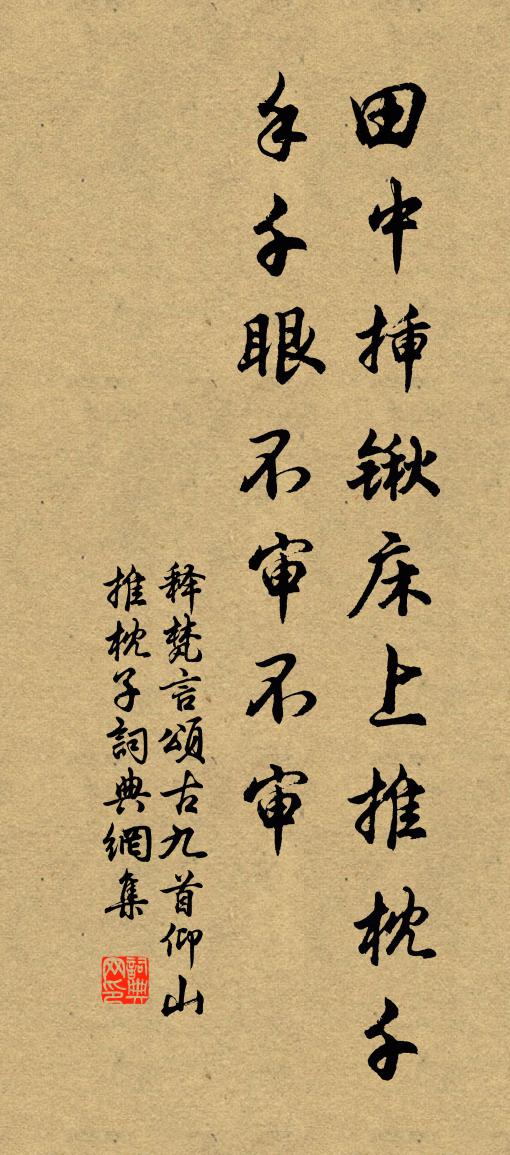 田中挿锹床上推枕千
手千眼不审不审
释梵言頌古九首仰山
推枕子詞典網集
詞典网印